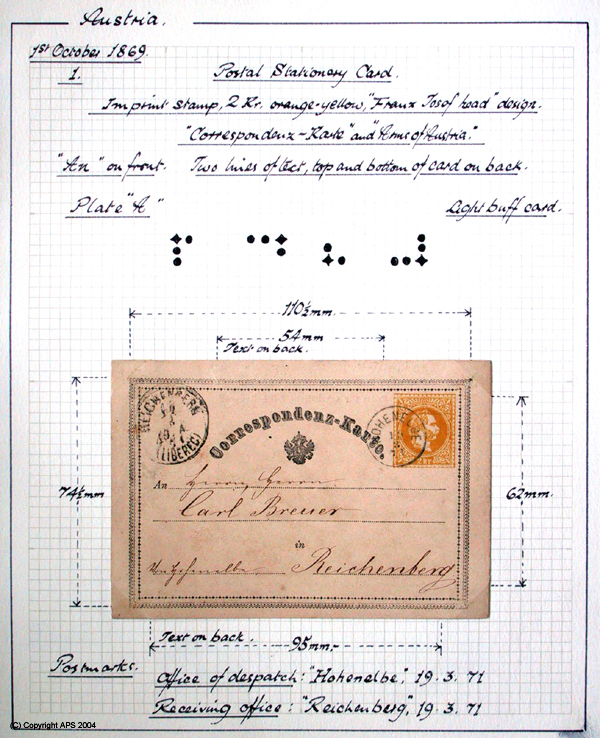 Austria.
1st October 1869.
1. Postal Stationery Card.
Imprint stamp, 2 Kr. orange-yellow, "Franz Josef head" design.
"Correspondenz-Karte" and "Arms of Austria."
"An" on front. Two lines of text, top and bottom of card on back.
Plate "A" Light buff card.
110½mm
54mm
Text on back.
REICHENBERG
(LIBEREC)
Correspondenz-Karte.
74½mm
62mm.
An Herrn Herrn
Carl Breuer
in
Reichenberg
Text on back.
95mm.
Postmarks.
Office of despatch: "Hohenelbe", 19. 3. 71
Receiving office: "Reichenberg", 19. 3. 71
(C) Copyright APS 2004